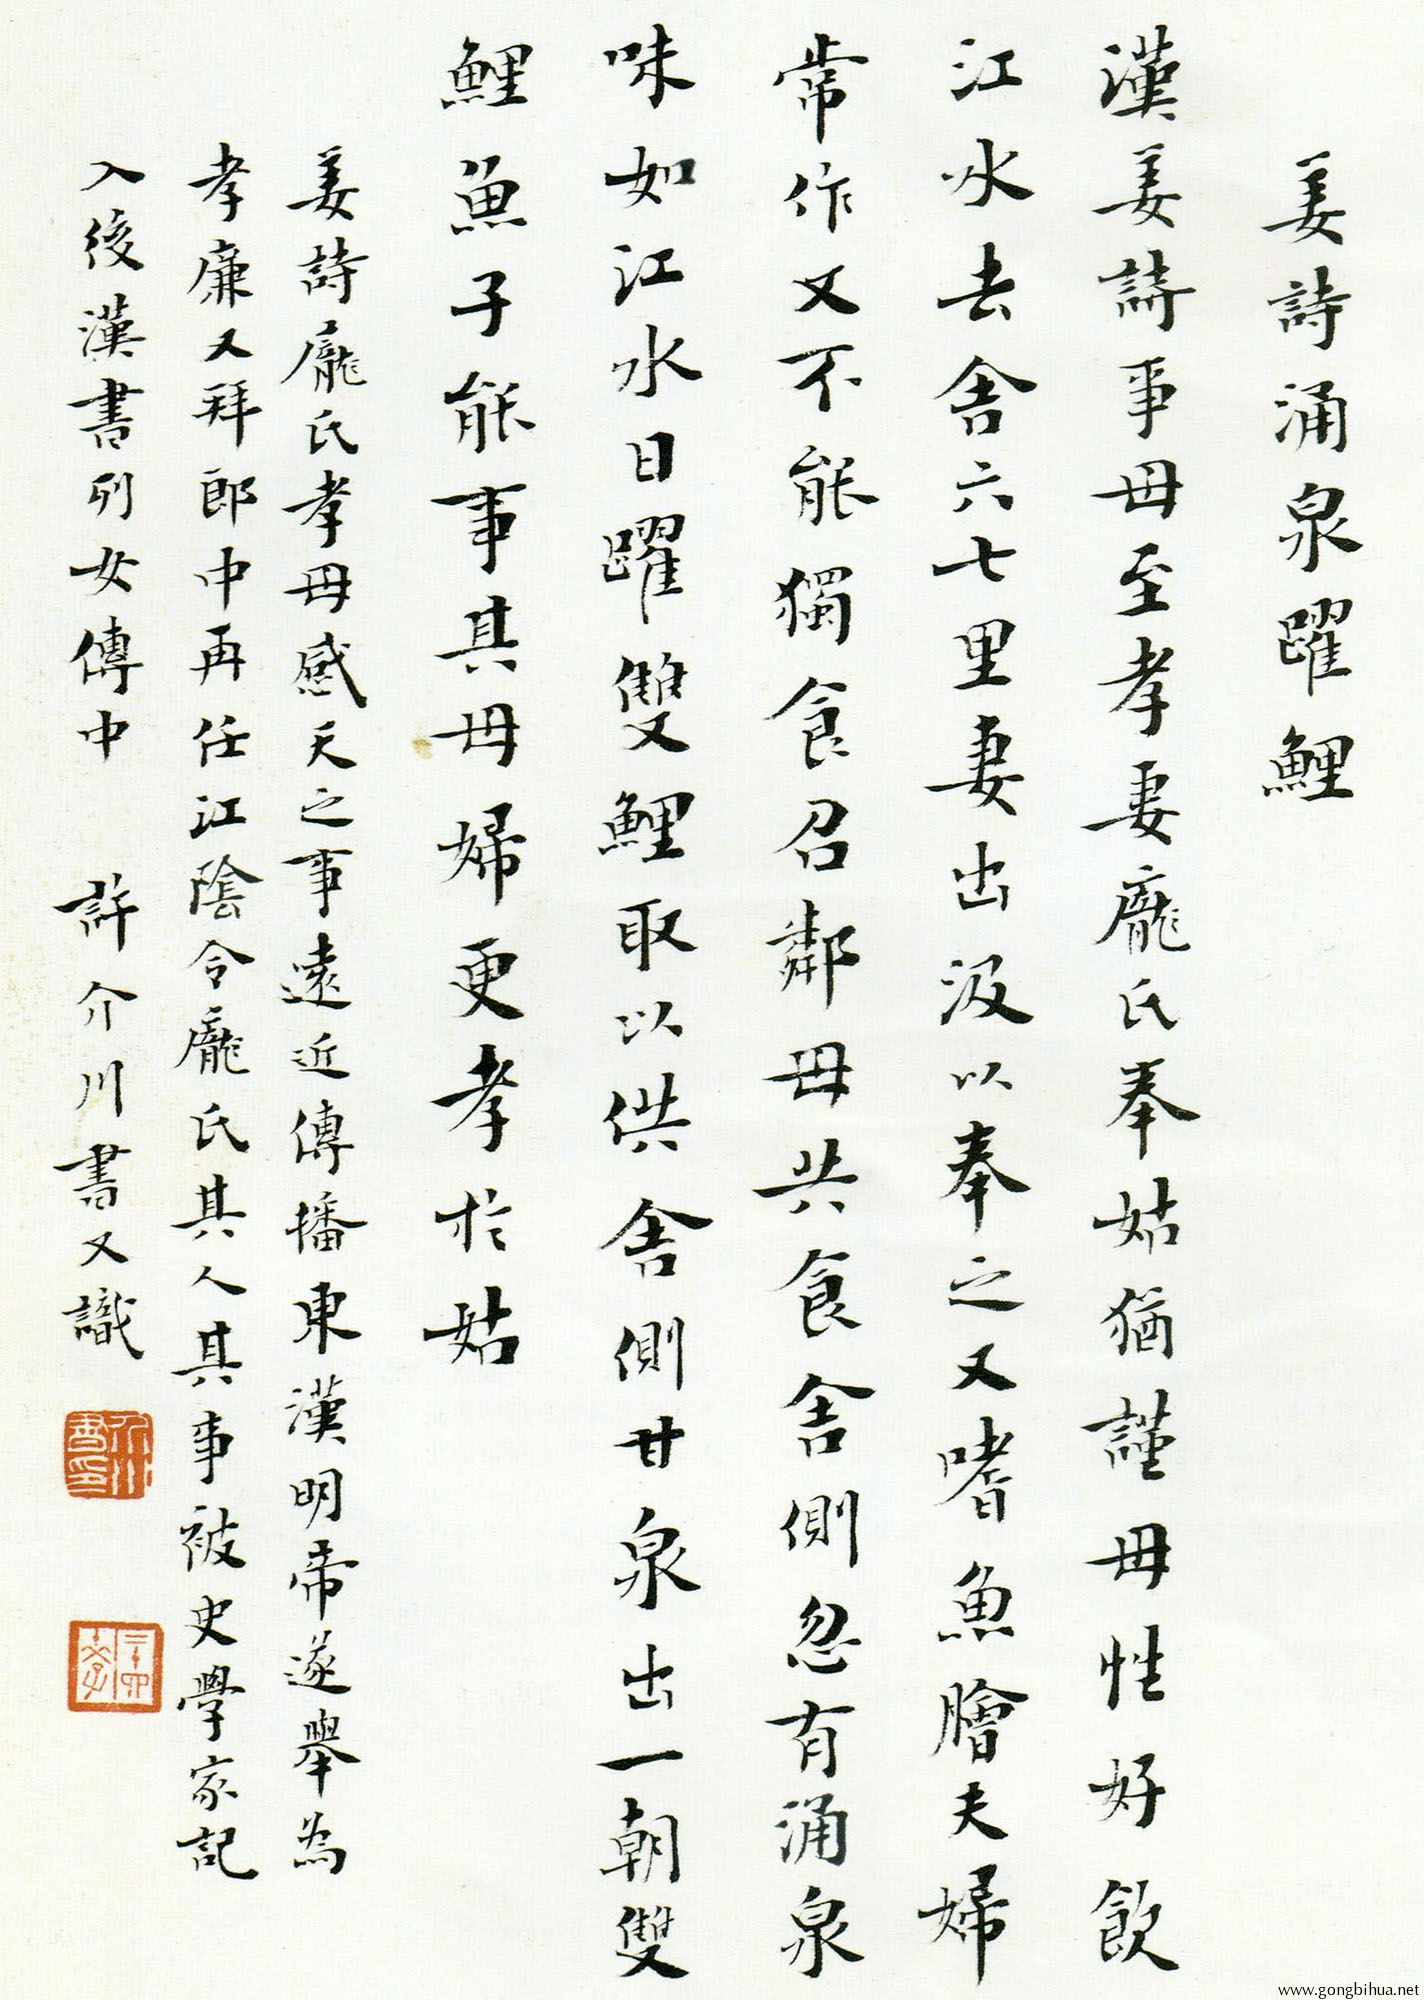 姜詩涌泉躍鯉
漢姜詩事母至孝妻龐氏奉姑猶謹母性好飲
江水去舍六七里妻出汲以奉之又嗜魚膾夫婦
常作又不能獨食召鄰母共食舍側忽有涌泉
味如江水日躍雙鯉取以供舍側甘泉出一朝雙
鯉魚子能事其母婦更孝於姑
姜詩龐氏孝母感天之事遠近傳播東漢明帝遂舉為
孝廉又拜郎中再任江陰令龐氏其人其事被史學家記
入後漢書列女傳中 許介川書又識
www.gongbihua.net